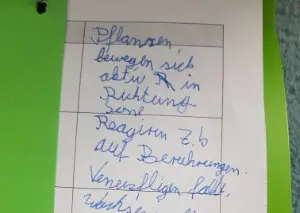 Pflanzen,
bewegen sich
aktiv in
Richtung
Sone
Reagiren Z.b
auf Berührungen.
Venusfligen falle,